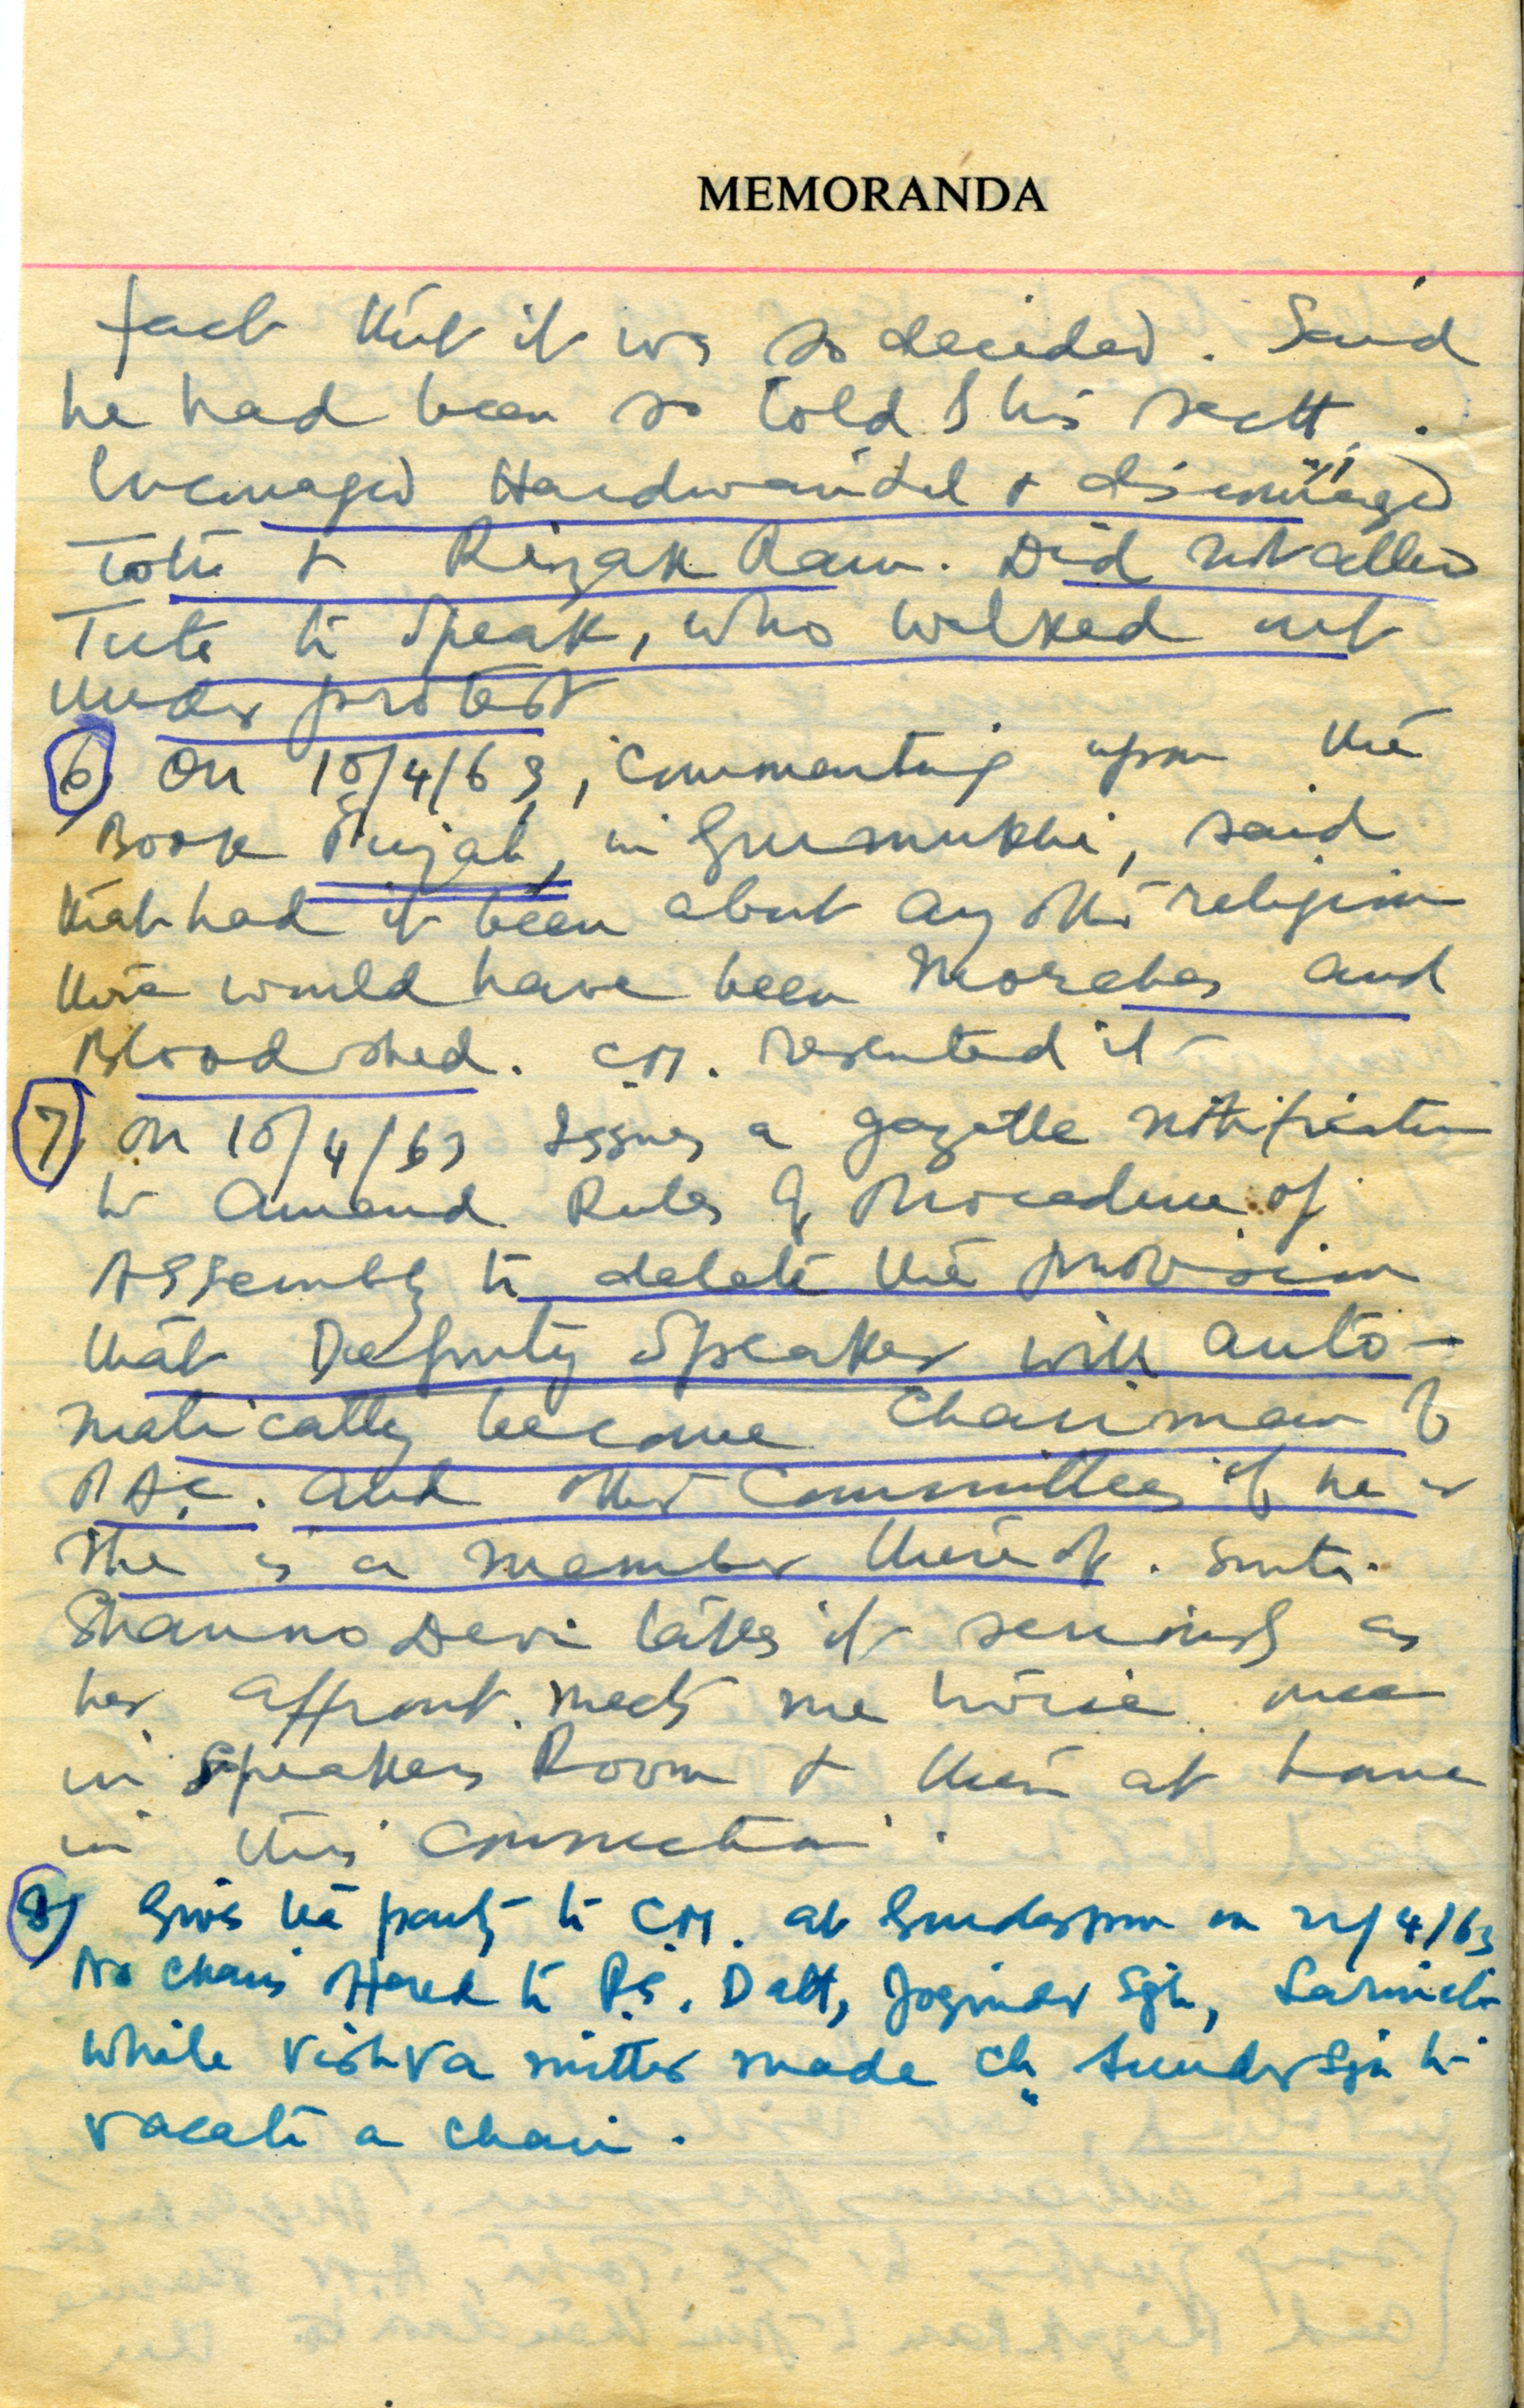 MEMORANDA
fact that it was so decided. Said
he had been so told by his Sectt.
Encouraged Hardwarilal & discouraged
Tote & Rizak Ram. Did not allow
Tote to speak, who walked out
under protest
6) On 10/4/63, commenting upon the
Book in Gurmukhi, said
that had it been about any other religion
there would have been Morchas and
Bloodshed. C.M. resented it
7) On 10/4/63 Issues a gazette notification
to amend Rules of Procedure of
Assembly to delete the provision
that Deputy Speaker will auto-
matically become Chairman of
P.A.C. and other Committees if he or
she is a member thereof. Smt.
Shanno Devi takes it seriously as
her affront. Meets me twice once
in Speakers Room & then at home
in this connection.
8) Gives tea party to C.M. at Gurdaspur on 21/4/63
No chair offered to P.S. Datt, Joginder Sgh,
while Vishva mitter made Ch. Sunder Sgh to
vacate a chair.